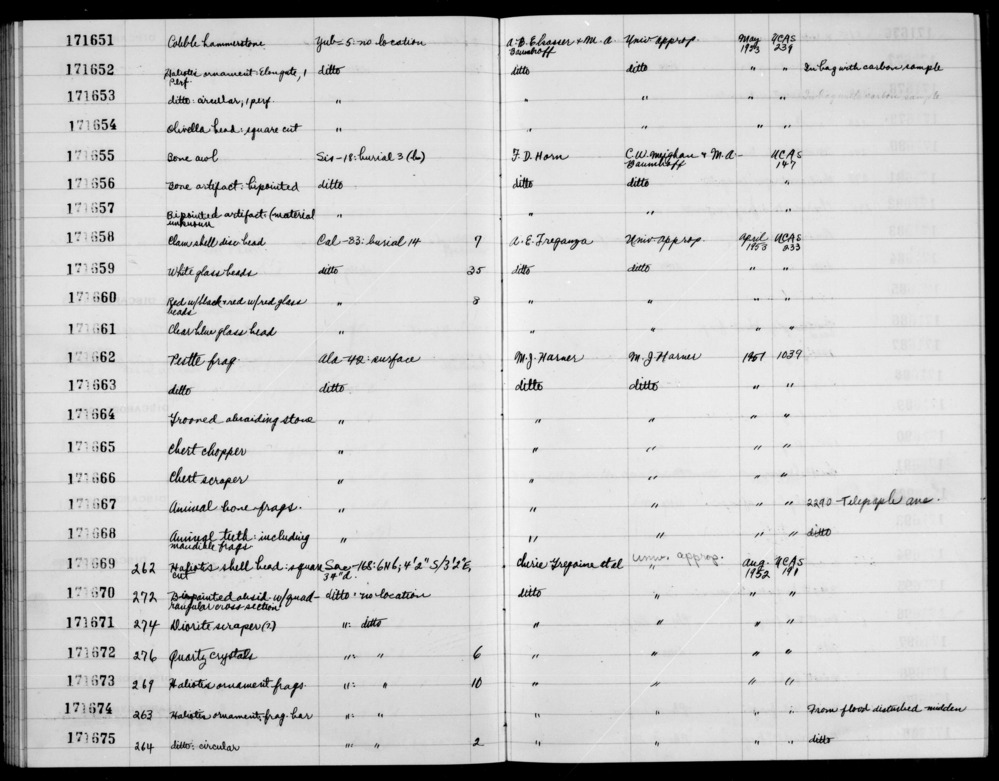 171651 Cobble hammerstone Yub-5: no location A.B. Elsasser + M.A. Baumhoff Univ approp. May 1953 UCAS 239
171652 Haliotis ornament: Elongate, 1 perf. ditto ditto ditto " " In bag with carbon sample
171653 ditto: circular, 1 perf. " " " " "
171654 Olivella bead: square cut " " " " "
171655 Bone awl Sis-18: burial 3 F.D. Horn C.W. Meighan + M.A. Baumhoff - UCAS 147
171656 Bone artifact: bipointed ditto ditto ditto "
171657 Bipointed artifact: (material unknown " " " "
171658 Clam shell disc bead Cal-83: burial 14 7 A.E. Treganza Univ. approp. April 1953 UCAS 233
171659 White glass beads ditto 25 ditto ditto " "
171660 Red w/black + red w/red glass beads " 8 " " " "
171661 Clear blue glass bead " " " " "
171662 Pestle frag. Ala-42: surface M.J. Harner M.J. Harner 1951 1039
171663 ditto ditto ditto ditto " "
171664 Grooved abraiding stone " " " " "
171665 Chert chopper " " " " "
171666 Chert scraper " " " " "
171667 Animal bone frags. " " " " " 2290 - Telegraph ave.
171668 Animal teeth: including mandible frags " " " " " ditto
171669 262 Haliotis shell bead: square cut Sac-168: 6N6; 4'2" S/3'2"E, 34"d. Cherie Gregoire et al Univ. approp. " Aug. 1952 UCAS 191
171670 272 Bipointed obsid. w/quadrangular cross-section ditto: no location ditto " " "
171671 274 Diorite scraper (?) ": ditto " " " "
171672 276 Quartz crystals ": " 6 " " " "
171673 269 Haliotis ornament frags. ": " 10 " " " "
171674 263 Haliotis ornament, frag. bar ": " " " " " From flood disturbed midden
171675 264 ditto; circular ": " 2 " " " " ditto